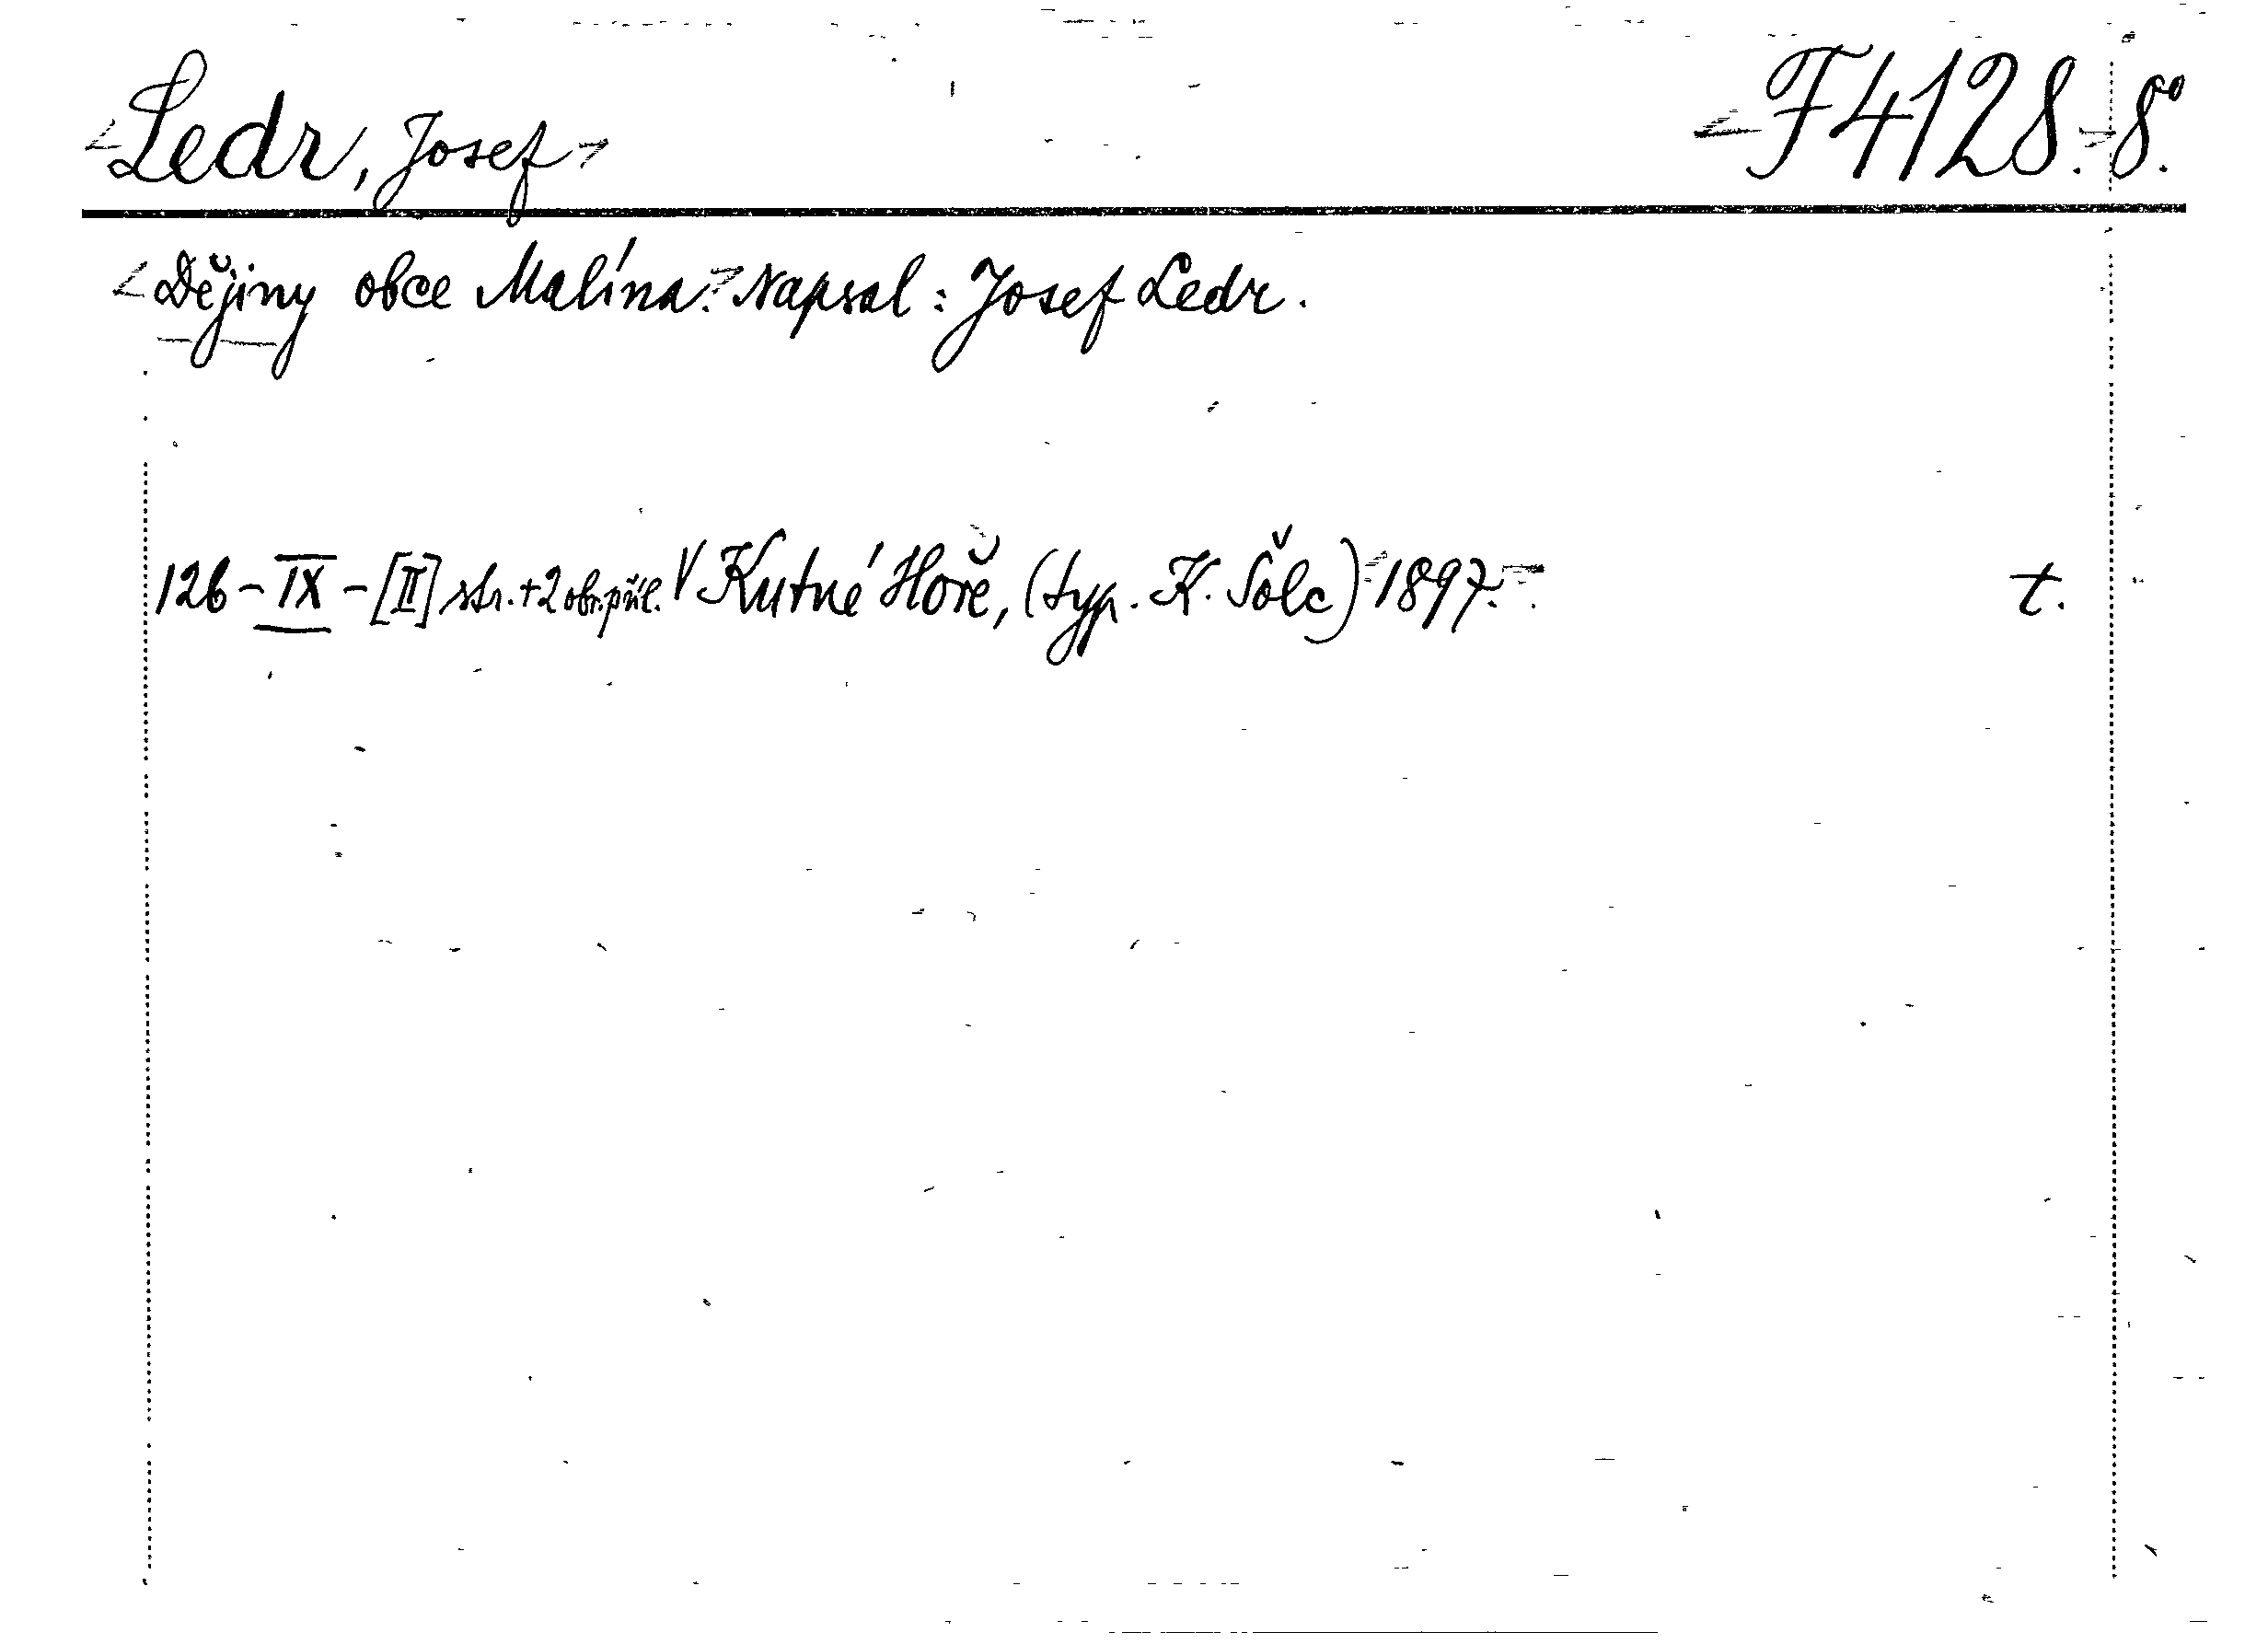 Ledr, Josef F 4128. 8º.
Dějiny obce Malína. Napsal: Josef Ledr.
126 - IX - [II] str. + 2 obr. příl. V Kutné Hoře, (typ. K. Šolc) 1897. t.